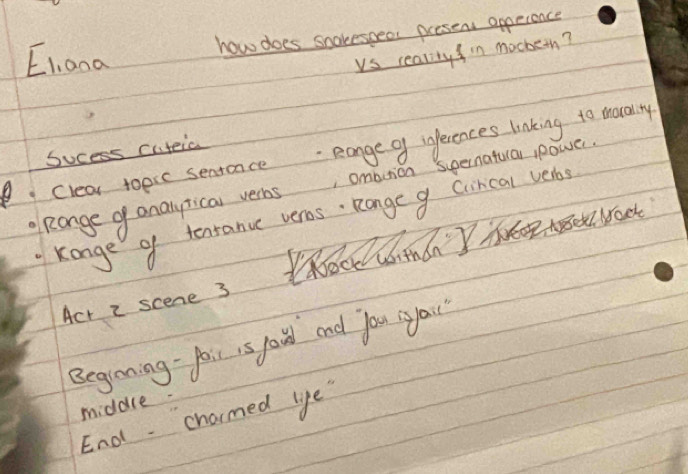 Eliana
how does snakespear present apperance
Vs reality in macbeth?
Sucess criteia
• Clear topic sentance
• Range of analytical verbs
• Range of tentative verbs
- Range of inferences linking to morality
, ambition supernatural, power.
• Range of Critical verbs
Act 2 scene 3
Beginning - fair is foul" and "foul is fair"
middle -
End - "charmed life"